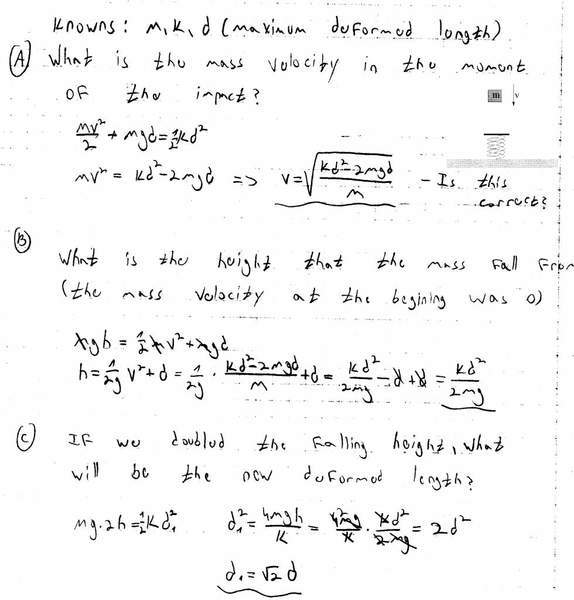 Knowns: m, k, d (maximum deformed length)
(A) What is the mass velocity in the moment
of the impact?
m v
mv²/2 + mgd = ½kd²
mv² = kd² - 2mgd => v = √((kd² - 2mgd)/m) - Is this
correct?
(B)
What is the height that the mass fall from
(the mass velocity at the begining was 0)
mgh = ½mv² + mgd
h = 1/2g v² + d = 1/2g · (kd² - 2mgd)/m + d = kd²/2mg - d + d = kd²/2mg
(C) If we doubled the falling height, what
will be the new deformed length?
mg·2h = ½kd₁² d₁² = 4mgh/k = 4mg/k · kd²/2mg = 2d²
d₁ = √2 d